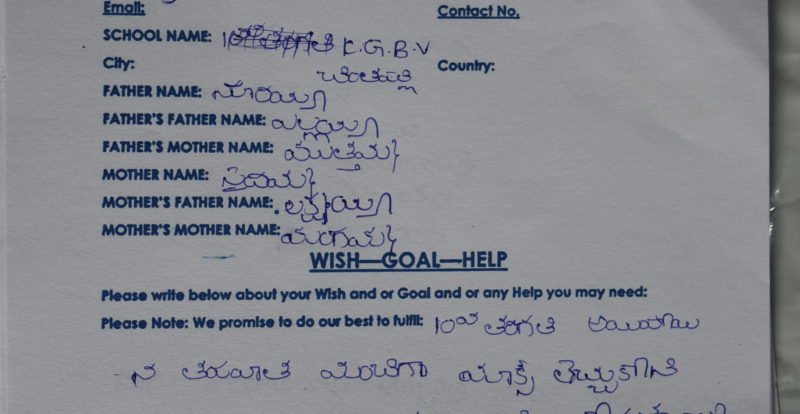 Email: Contact No.
SCHOOL NAME: K.G.B.V
City: Country:
FATHER NAME:
FATHER'S FATHER NAME: ఎల్లయ్య
FATHER'S MOTHER NAME: ముత్తమ్మ
MOTHER NAME:
MOTHER'S FATHER NAME: లక్ష్మయ్య
MOTHER'S MOTHER NAME: మంగమ్మ
WISH—GOAL—HELP
Please write below about your Wish and or Goal and or any Help you may need:
Please Note: We promise to do our best to fulfill: 10వ తరగతి అయిపోయి
న తరవాత మంచిగా మార్క్స్ తెచ్చుకొని